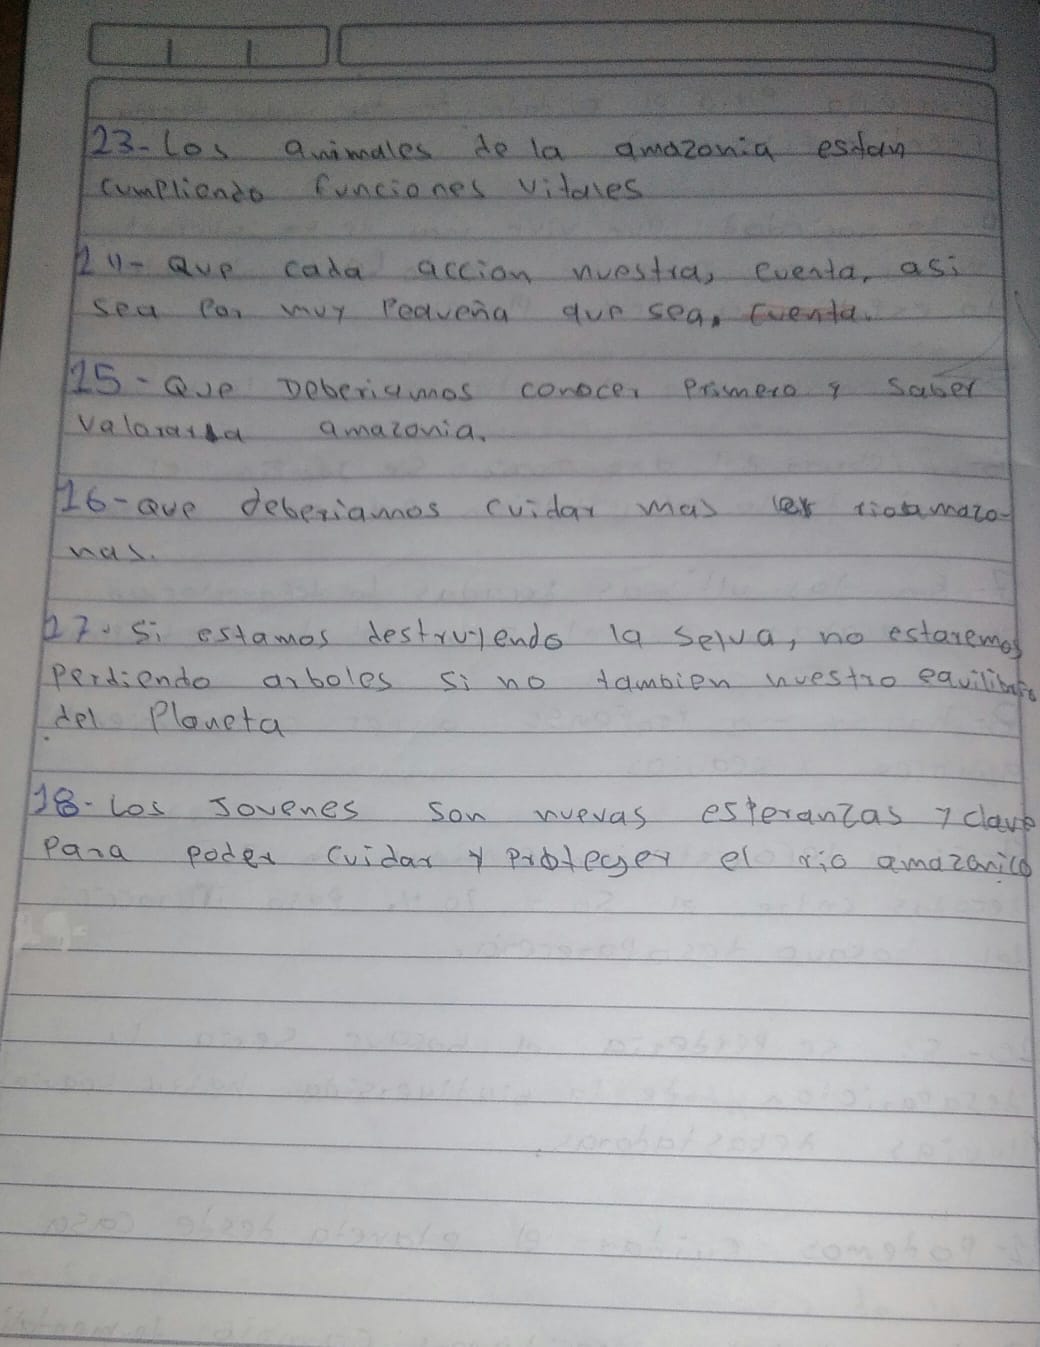 23- Los animales de la amazonia estan
cumpliendo funciones vitales
24- Que cada accion nuestra, cuenta, asi
sea por muy Pequeña que sea, cuenta.
15- Que Deberiamos conocer Primero y saber
valorar la amazonia.
16- que deberiamos cuidar mas rio amazo-
nas.
17- Si estamos destruyendo la selva, no estaremos
Perdiendo arboles si no tambien nuestro equilibrio
del Planeta
18- Los Jovenes son nuevas esperanzas y clave
para poder cuidar y proteger el rio amazonico